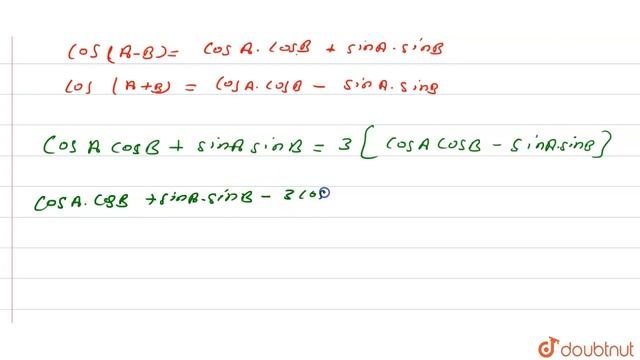 cos(A-B) = cosA.cosB + sinA.sinB
cos (A+B) = cosA.cosB - sinA.sinB
cosA cosB + sinA sinB = 3 [ cosA cosB - sinA.sinB ]
cosA.cosB + sinA.sinB - 3 cos
doubtnut